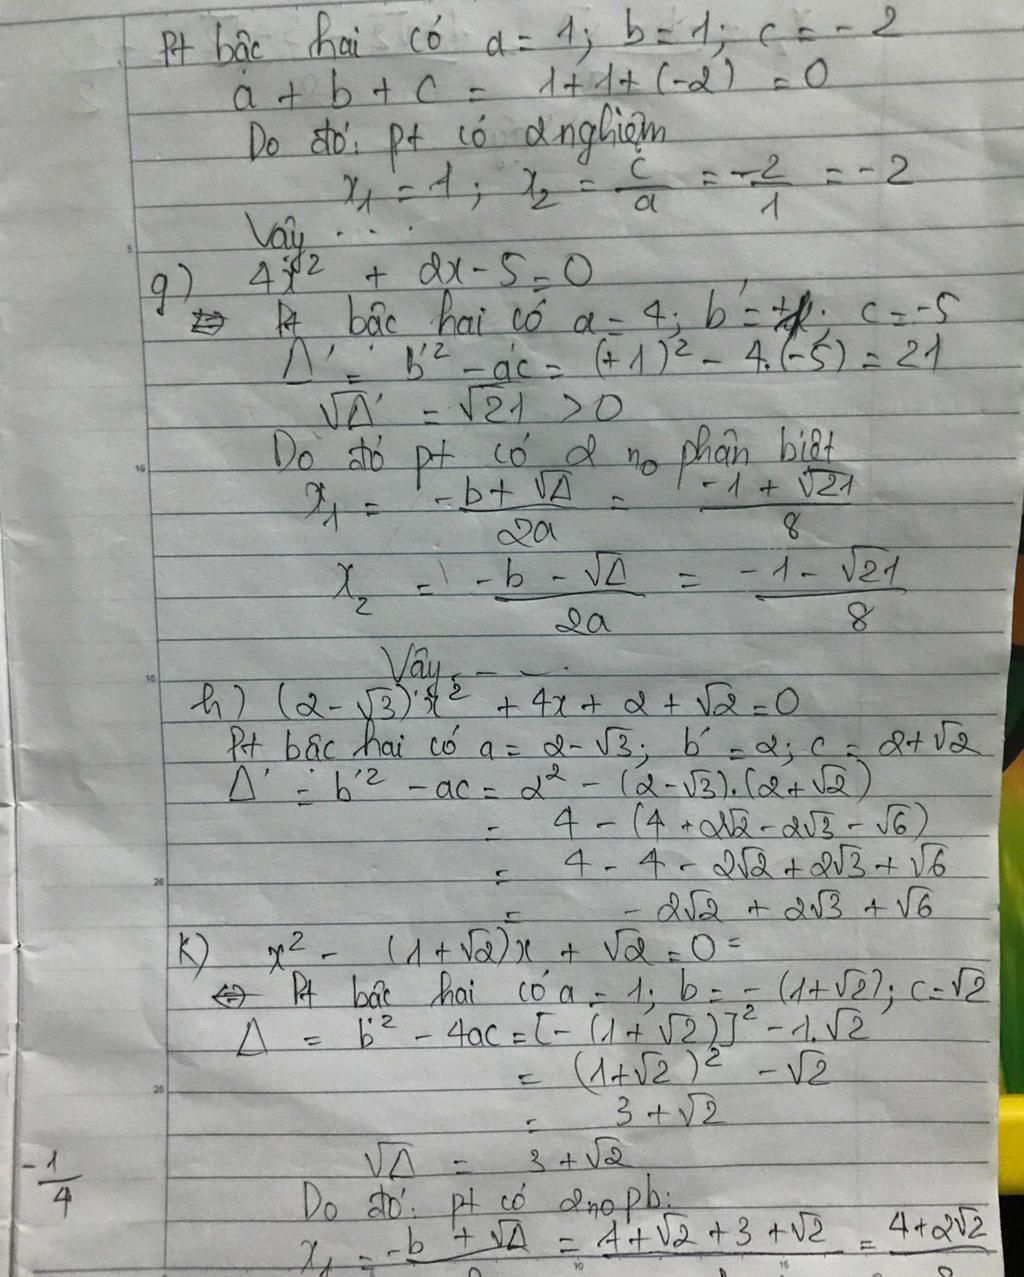 Pt bậc hai có a = 1; b = 1; c = - 2
a + b + c = 1+1+(-2) = 0
Do đó: pt có 2 nghiệm
x₁ = 1; x₂ = c/a = -2/1 = - 2
Vậy ....
g) 4x² + 2x - 5 = 0
⇔ Pt bậc hai có a = 4; b' = +1; c = -5
Δ' = b'² - ac = (+1)² - 4.(-5) = 21
√Δ' = √21 > 0
Do đó pt có 2 no phân biệt
x₁ = -b + √Δ / 2a = -1 + √21 / 8
x₂ = -b - √Δ / 2a = -1 - √21 / 8
Vậy - - .
h) (2 - √3)x² + 4x + 2 + √2 = 0
Pt bậc hai có a = 2 - √3; b' = 2; c = 2+√2
Δ' = b'² - ac = 2² - (2-√3).(2+√2)
= 4 - (4 + 2√2 - 2√3 - √6)
= 4 - 4 - 2√2 + 2√3 + √6
= - 2√2 + 2√3 + √6
K) x² - (1+√2)x + √2 = 0 =
⇔ Pt bậc hai có a = 1; b = - (1+√2); c = √2
Δ = b² - 4ac = [- (1+√2)]² - 1.√2
= (1+√2)² - √2
= 3 + √2
√Δ = 3 + √2
-1/4
Do đó: pt có 2 no pb:
x₁ = -b + √Δ = 1+√2 + 3 + √2 = 4+2√2